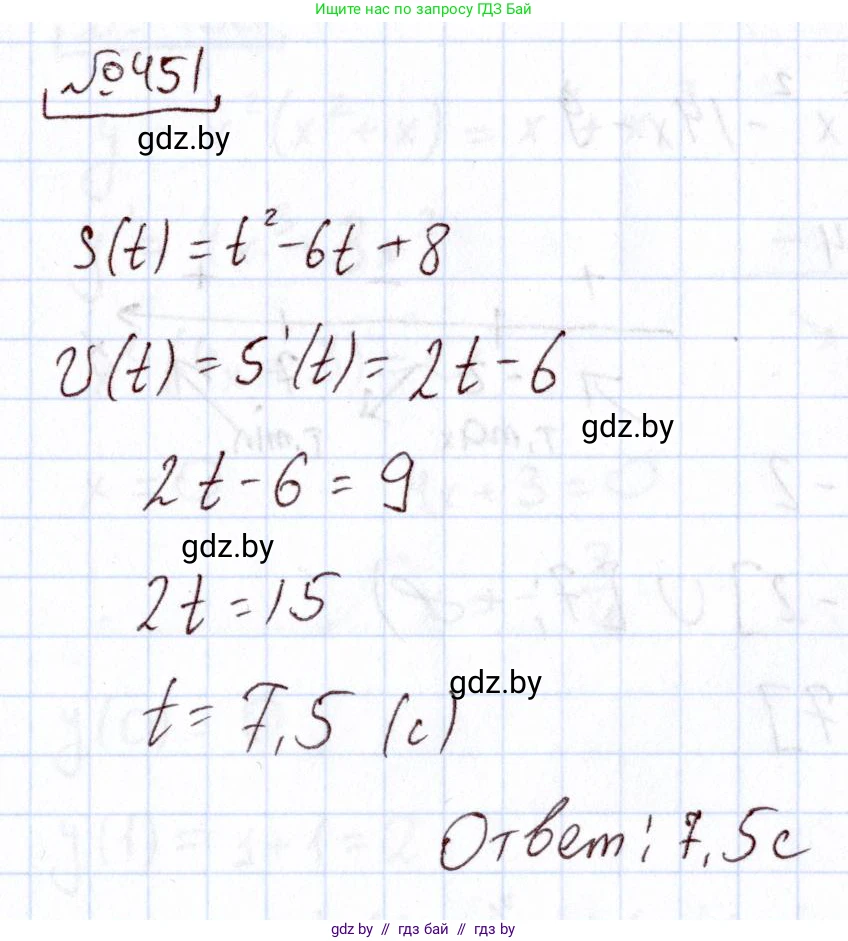 Ищите нас по запросу ГДЗ Бай
№451
gdz.by
s(t) = t² - 6t + 8
v(t) = s'(t) = 2t - 6
gdz.by
2t - 6 = 9
gdz.by
2t = 15
gdz.by
t = 7,5 (с)
Ответ: 7,5с
gdz.by // гдз бай // гдз by